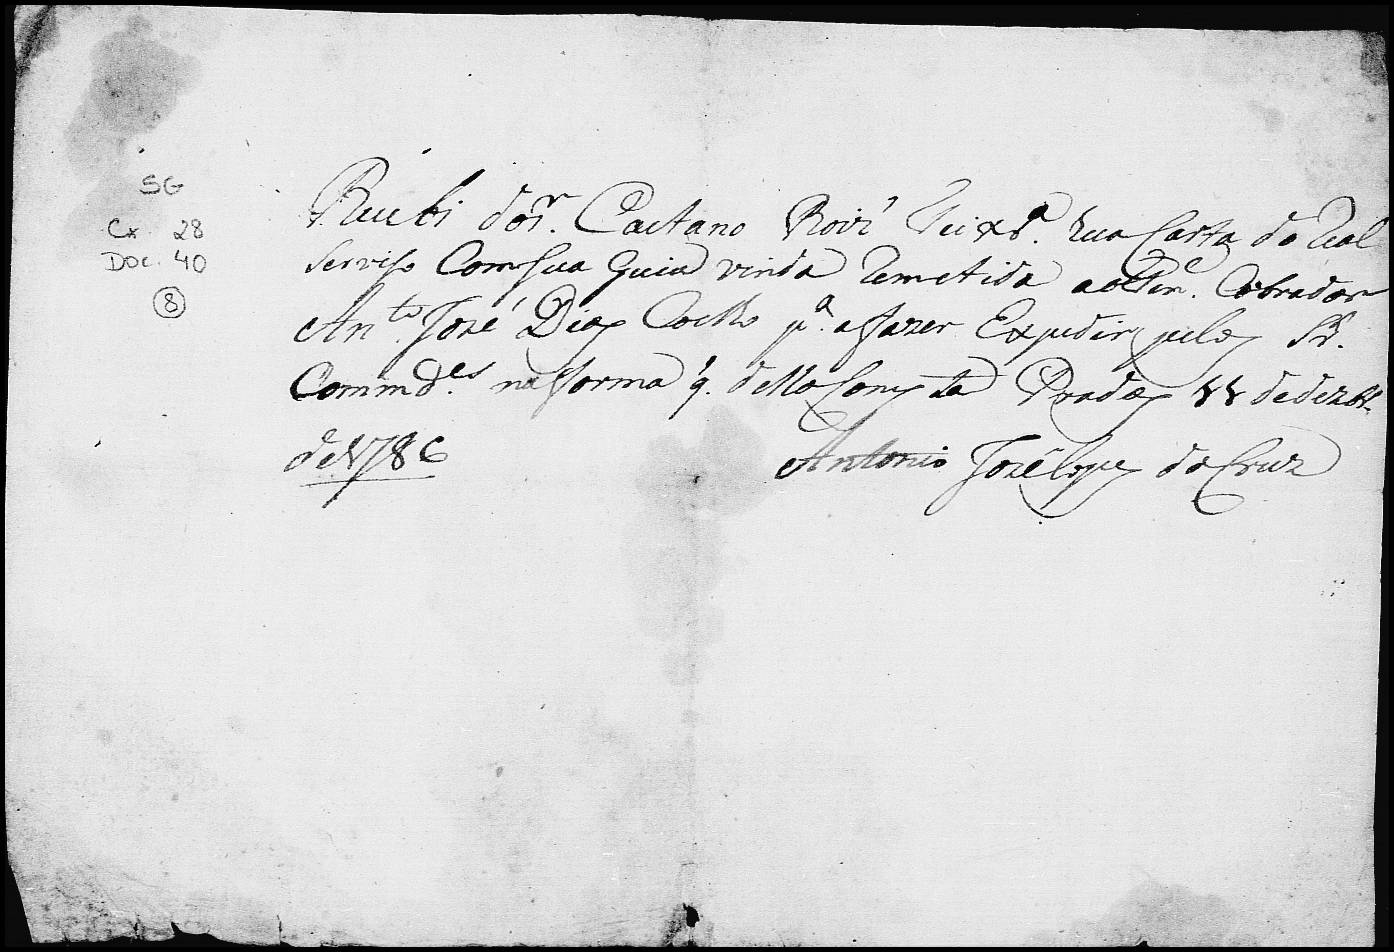 SG
Cx. 28
Doc. 40
8
Recebi do Sr. Caetano Roiz' Teixr.a hua Carta do Real
Serviso Com sua Guia vinda Remetida ao Ten.e Cobrador
An.to José Dias Coelho p.a a fazer Expedir pelos Sr.
Commd.es na forma q. della Consta Prados 11 de dezbr.
de 1786
Antonio José Lopes da Cruz